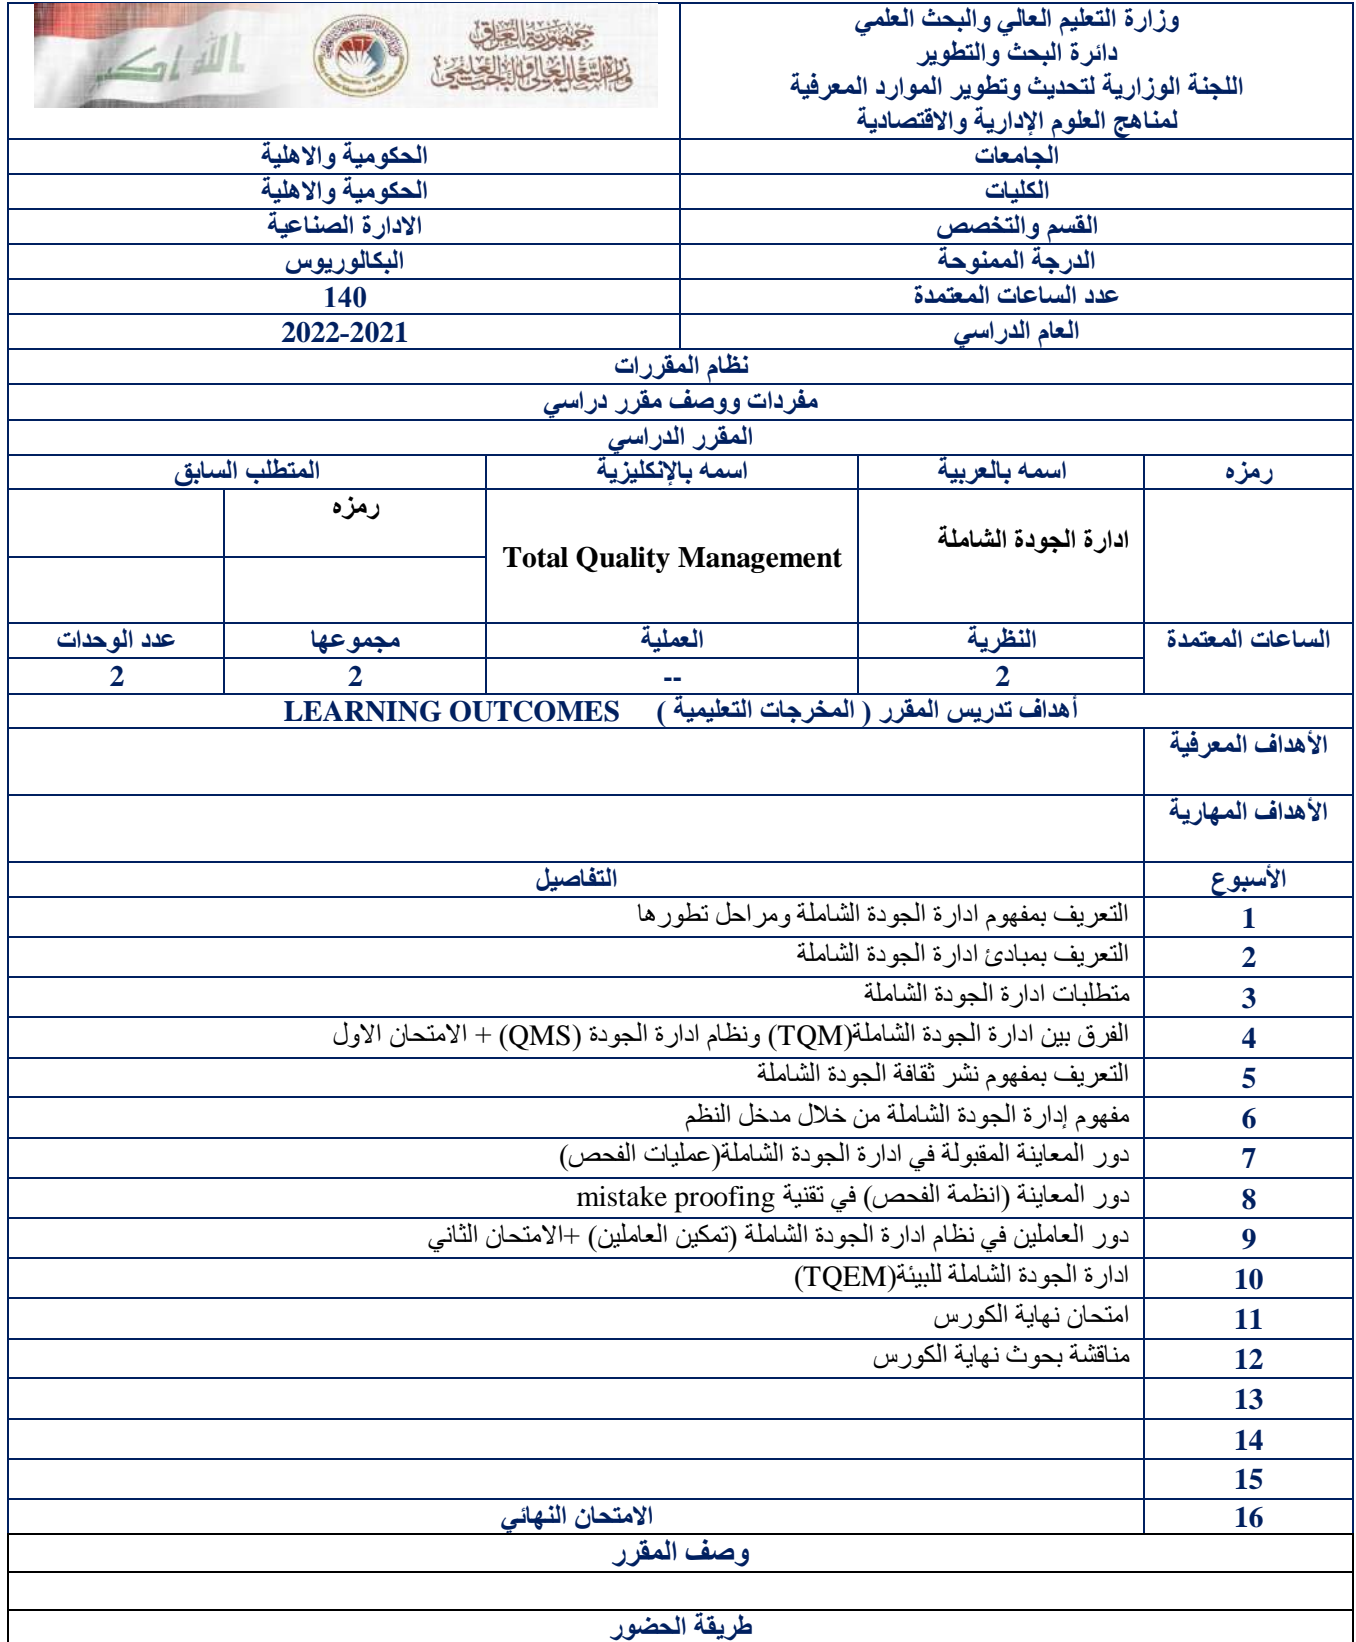 وزارة التعليم العالي والبحث العلمي
دائرة البحث والتطوير
اللجنة الوزارية لتحديث وتطوير الموارد المعرفية
لمناهج العلوم الإدارية والاقتصادية
جمهورية العراق
وزارة التعليم العالي والبحث العلمي
الله اكبر
الجامعات الحكومية والاهلية
الكليات الحكومية والاهلية
القسم والتخصص الادارة الصناعية
الدرجة الممنوحة البكالوريوس
عدد الساعات المعتمدة 140
العام الدراسي 2022-2021
نظام المقررات
مفردات ووصف مقرر دراسي
المقرر الدراسي
رمزه اسمه بالعربية اسمه بالإنكليزية المتطلب السابق
رمزه
ادارة الجودة الشاملة Total Quality Management
الساعات المعتمدة النظرية العملية مجموعها عدد الوحدات
2 -- 2 2
أهداف تدريس المقرر ( المخرجات التعليمية ) LEARNING OUTCOMES
الأهداف المعرفية
الأهداف المهارية
الأسبوع التفاصيل
1 التعريف بمفهوم ادارة الجودة الشاملة ومراحل تطورها
2 التعريف بمبادئ ادارة الجودة الشاملة
3 متطلبات ادارة الجودة الشاملة
4 الفرق بين ادارة الجودة الشاملة(TQM) ونظام ادارة الجودة (QMS) + الامتحان الاول
5 التعريف بمفهوم نشر ثقافة الجودة الشاملة
6 مفهوم إدارة الجودة الشاملة من خلال مدخل النظم
7 دور المعاينة المقبولة في ادارة الجودة الشاملة(عمليات الفحص)
8 دور المعاينة (انظمة الفحص) في تقنية mistake proofing
9 دور العاملين في نظام ادارة الجودة الشاملة (تمكين العاملين) +الامتحان الثاني
10 ادارة الجودة الشاملة للبيئة(TQEM)
11 امتحان نهاية الكورس
12 مناقشة بحوث نهاية الكورس
13
14
15
16 الامتحان النهائي
وصف المقرر
طريقة الحضور